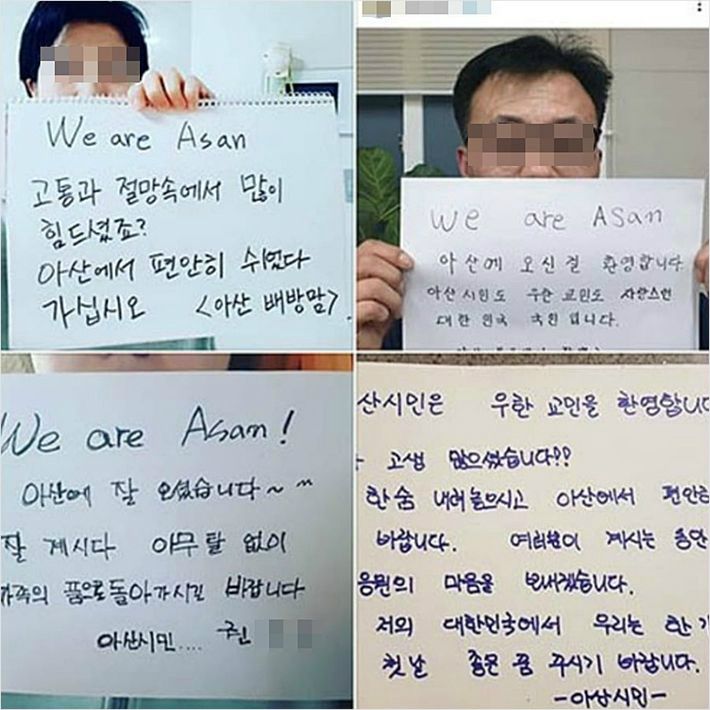 We are Asan
고통과 절망속에서 많이
힘드셨죠?
아산에서 편안히 쉬었다
가십시오 <아산 배방맘>.
We are ASan
아산에 오신걸 환영합니다
아산시민도 우한 교민도 자랑스런
대한민국 국민입니다.
We are Asan!
아산에 잘 오셨습니다~^^
잘 계시다 아무탈 없이
가족의 품으로돌아가시길 바랍니다
아산시민....
산시민은 우한 교민을 환영합니다
고생 많으셨습니다??
한숨 내려놓으시고 아산에서 편안
바랍니다. 여러분이 계시는 동안
응원의 마음을 보내겠습니다.
저의 대한민국에서 우리는 한
첫날 좋은 꿈 꾸시기 바랍니다.
-아산시민-